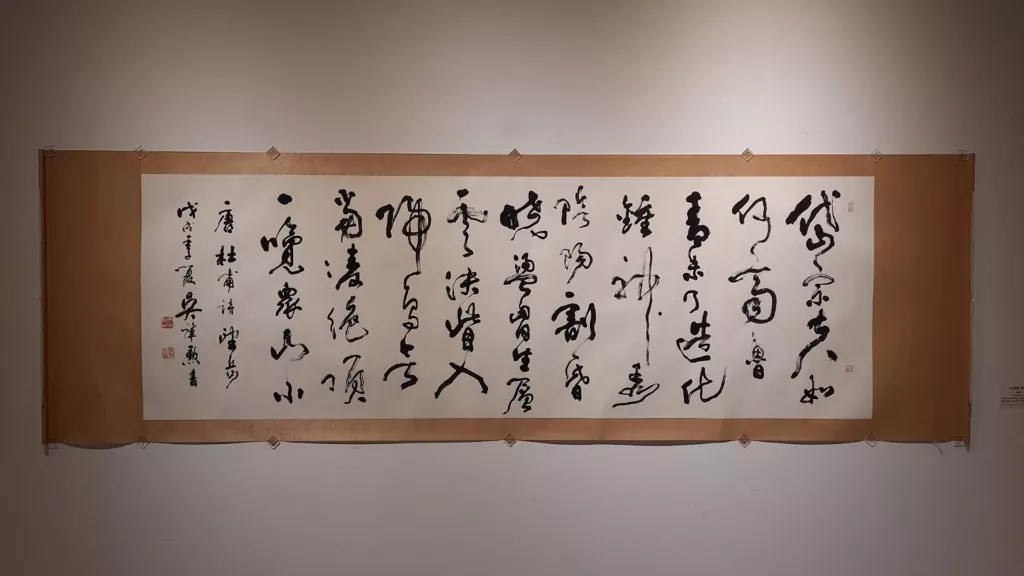 岱宗夫如
何齊魯
青未了造化
鍾神秀
陰陽割昏
曉盪胸生層
雲決眥入
歸鳥會
當凌絕頂
一覽衆山小
唐杜甫詩望岳
戊戌季夏吳書